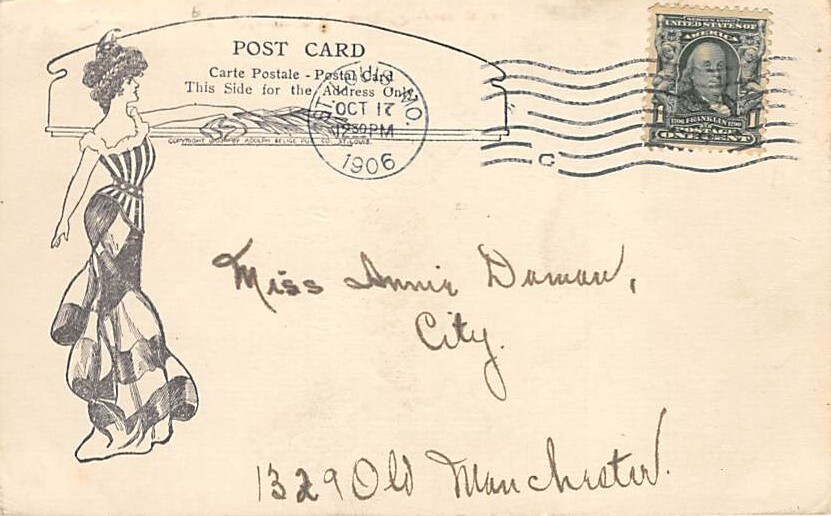 POST CARD
Carte Postale - Postal Card
This Side for the Address Only
COPYRIGHT BY ADOLPH SELIGE PUB. CO. ST. LOUIS.
ST. LOUIS, MO.
OCT 17
1230PM
1906
C
SERIES 1902
UNITED STATES OF
AMERICA
1 1
1706 FRANKLIN 1790
POSTAGE
ONE CENT
Miss Annie Daman,
City.
1329 Old Manchester.